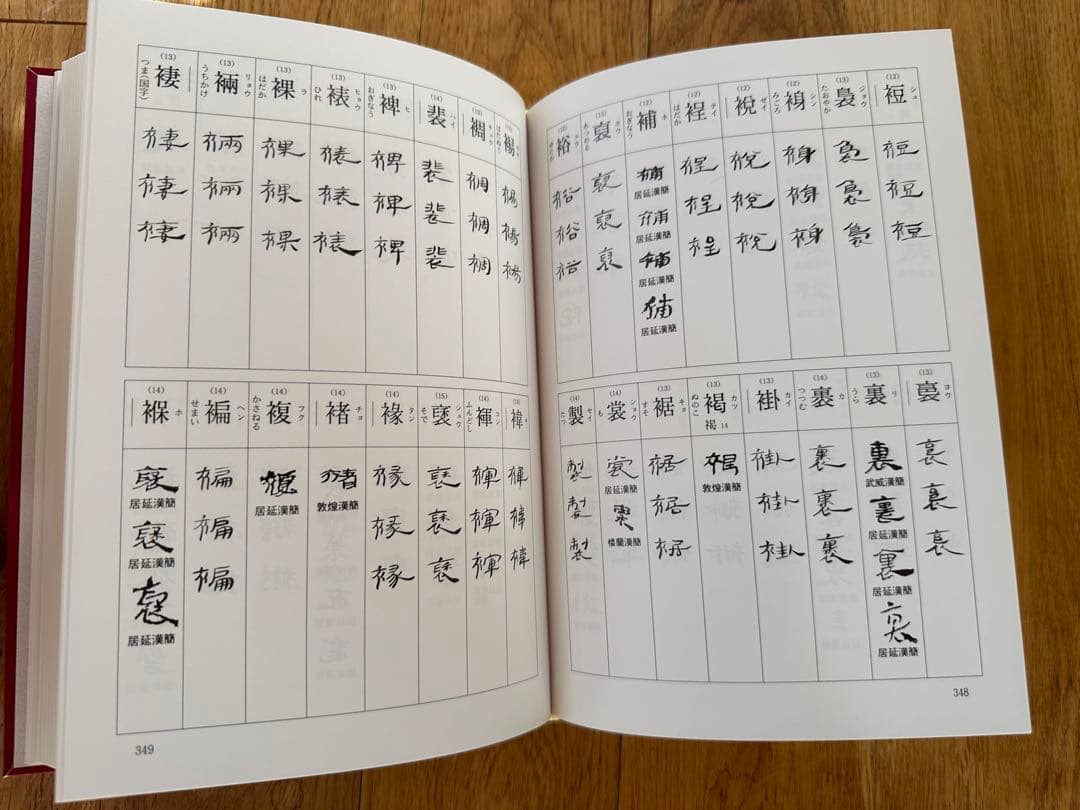 (12) 裋 シュ
(13) 裊 ジョウ たおやか
(12) 裑 シン みごろ
(12) 裞 ゼイ
(12) 裎 テイ はだか
(12) 補 ホ おぎなう
居延漢簡
居延漢簡
居延漢簡
居延漢簡
(13) 裒 ホウ
裕 ユウ
(13) ヨウ
(13) 裏 リ うら
武威漢簡
居延漢簡
居延漢簡
居延漢簡
(14) 裹 カ つつむ
(13) 褂 カイ
(13) 褐 カツ ぬのこ
褐 14
敦煌漢簡
(13) 裾 キョ すそ
(14) 裳 ショウ も
居延漢簡
楼蘭漢簡
(14) 製 セイ たつ
348
裼
裯
(14) 裴 ハイ
(13) 裨 ヒ おぎなう
(13) 裱 ヒョウ ひれ
(13) 裸 ラ はだか
(13) 裲 リョウ うちかけ
(13) 褄 つま(国字)
(14) 褘
(14) 褌 コン ふんどし
(15) 褎 シュウ そで
(14) 褖 タン
(14) 褚 チョ
敦煌漢簡
(14) 複 フク かさねる
居延漢簡
(14) 褊 ヘン せまい
(14) 褓 ホ
居延漢簡
居延漢簡
居延漢簡
349